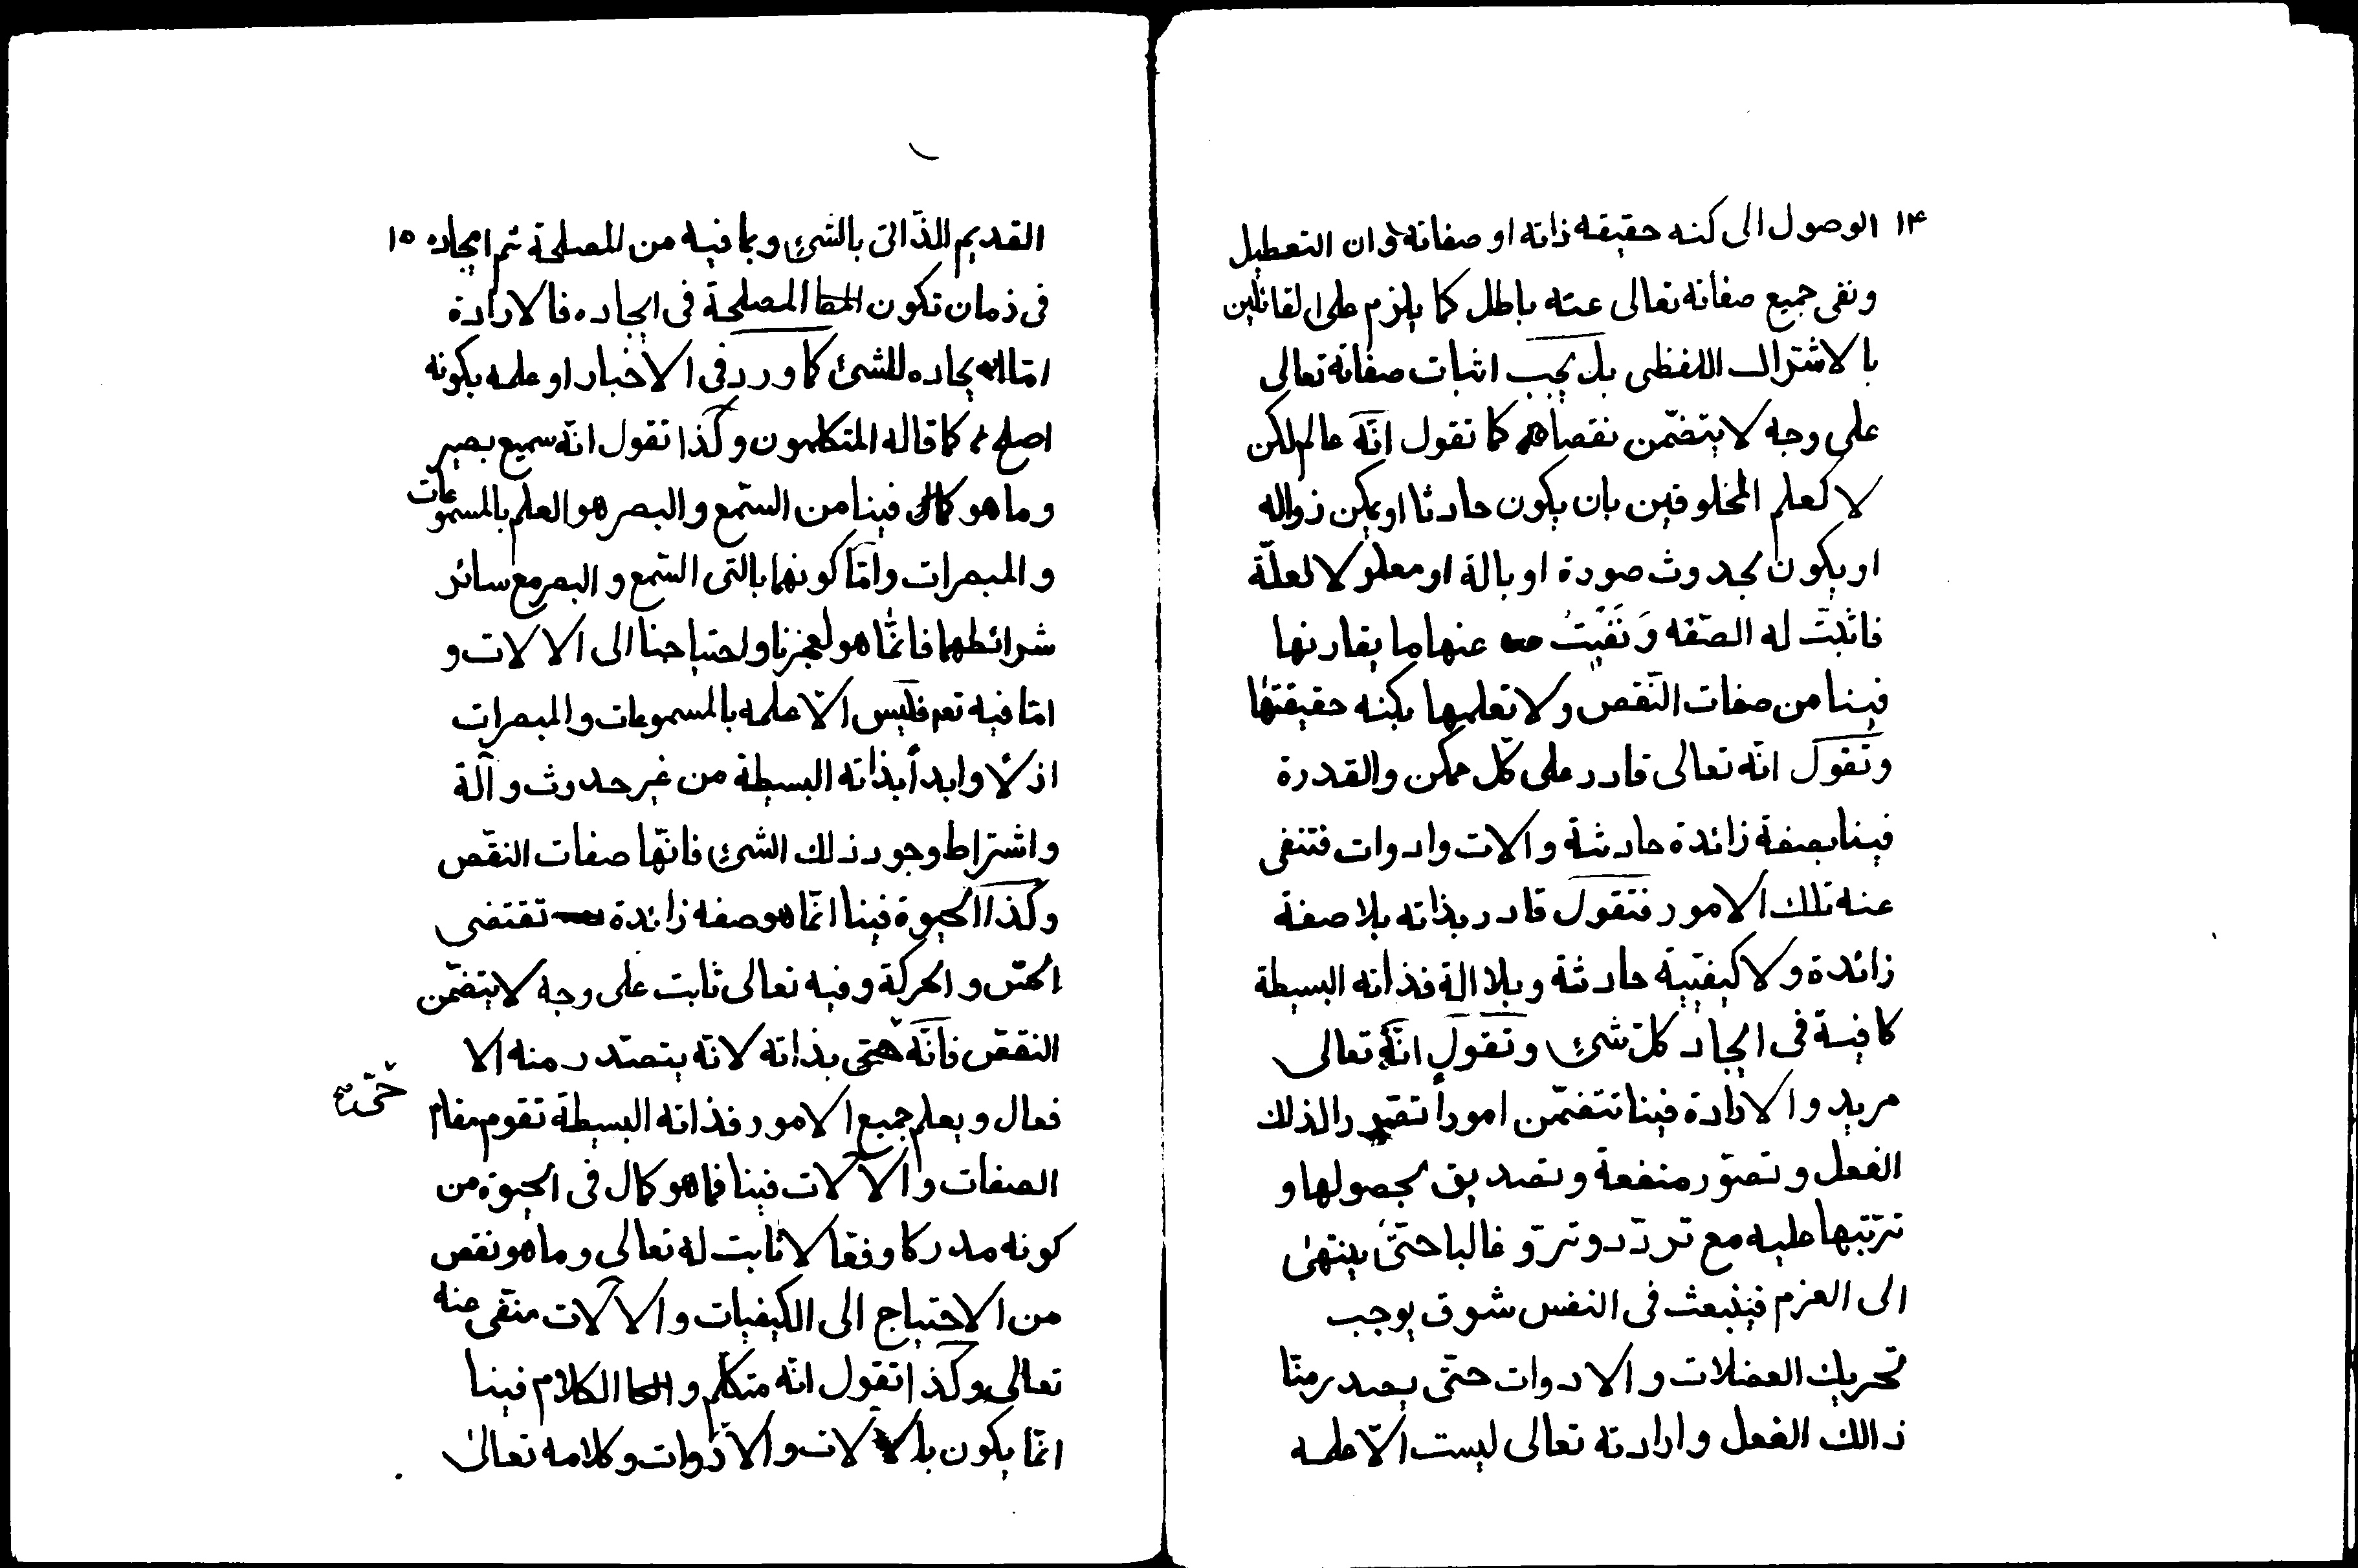 ١٤ الوصول الى كنه حقيقه ذاته او صفاته وان التعطيل
ونفى جميع صفاته تعالى عنه باطل كما يلزم على القائلين
بالاشتراك اللفظى بل يجب اثبات صفاته تعالى
على وجه لا يتضمّن نقصا كما تقول انّه عالم لكن
لا كعلم المخلوقين بان يكون حادثا او يمكن زواله
او يكون بحدوث صورة او بالة او معلولا لعلّة
فاثبتّ له الصّفه وَ نَفَيْتُ عنها ما يقارنها
فينا من صفات النّقص ولا تعلمها بكنه حقيقتها
وتقول انّه تعالى قادر على كلّ ممكن والقدرة
فينا بصفة زائدة حادثة والات وادوات فتنفى
عنه تلك الامور فتقول قادر بذاته بلا صفة
زائدة ولا كيفيّة حادثة وبلا الة فذاته البسيطة
كافية فى ايجاد كلّ شئ وتقول انّه تعالى
مريد والارادة فينا تتضمّن اموراً تصوّر الذلك
الفعل وتصوّر منفعة وتصديق بحصولها و
ترتّبها عليه مع تردّد وتروّ غالبا حتّى ينتهى
الى العزم فينبعث فى النفس شوق يوجب
تحريك العضلات والادوات حتّى يصدر منّا
ذالك الفعل وارادته تعالى ليست الّا علمه
القديم الذّاتى بالشئ وبما فيه من المصلحة ثم ايجاده ١٥
فى زمان تكون المصلحة فى ايجاده فالارادة
امّا ايجاده للشئ كما ورد فى الاخبار او علمه بكونه
اصلح كما قاله المتكلمون وكذا تقول انّه سميع بصير
وما هو كمال فينا من السّمع والبصر هو العلم بالمسموعات
والمبصرات وامّا كونهما بالتى السّمع والبصر مع سائر
شرائطهما فانّما هو لعجزنا واحتياجنا الى الالات و
امّا فيه تعم فليس الّا علمه بالمسموعات والمبصرات
ازلًا وابداً بذاته البسيطة من غير حدوث وآلة
واشتراط وجود ذلك الشئ فانّها صفات النقص
وكذا الحيوة فينا انّما هو صفه زائدة تقتضى
الحسّ والحركة وفيه تعالى ثابت على وجه لا يتضمّن
النقص فانّه حىّ بذاته لانّه يتصدر منه الا
حىّ
فعال ويعلم جميع الامور فذاته البسيطة تقوم مقام
الصفات والآلات فينا فما هو كمال فى الحيوة من
كونه مدركا وفعّالا ثابت له تعالى وما هو نقص
من الاحتياج الى الكيفيات والآلات منفى عنه
تعالى وكذا تقول انّه متكلم والكلام فينا
انّما يكون بالالات والادوات وكلامه تعالى